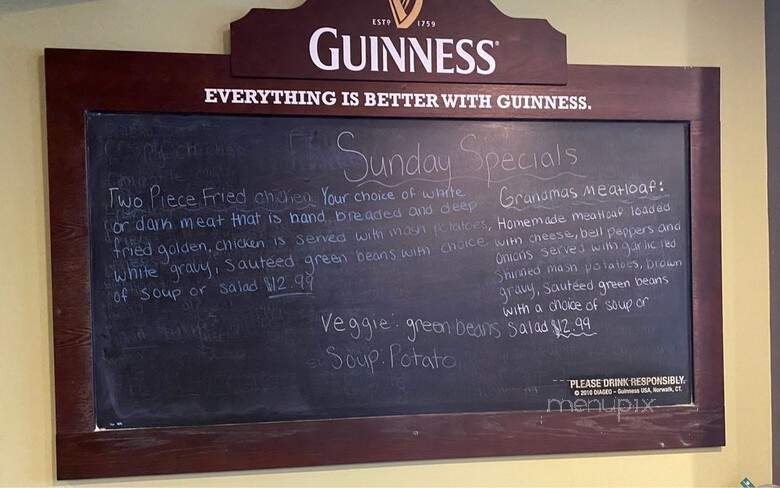 ESTD 1759
GUINNESS
EVERYTHING IS BETTER WITH GUINNESS.
Sunday Specials
Two Piece Fried chicken Your choice of white
or dark meat that is hand breaded and deep
fried golden, chicken is served with mash potatoes,
white gravy, sautéed green beans with choice
of soup or salad $12.99
Grandmas Meatloaf:
Homemade meatloaf loaded
with cheese, bell peppers and
onions served with garlic red
skinned mash potatoes, brown
gravy, sautéed green beans
with a choice of soup or
salad $12.99
Veggie: green beans
Soup: Potato
PLEASE DRINK RESPONSIBLY.
© 2010 DIAGEO - Guinness USA, Norwalk, CT.
menupix